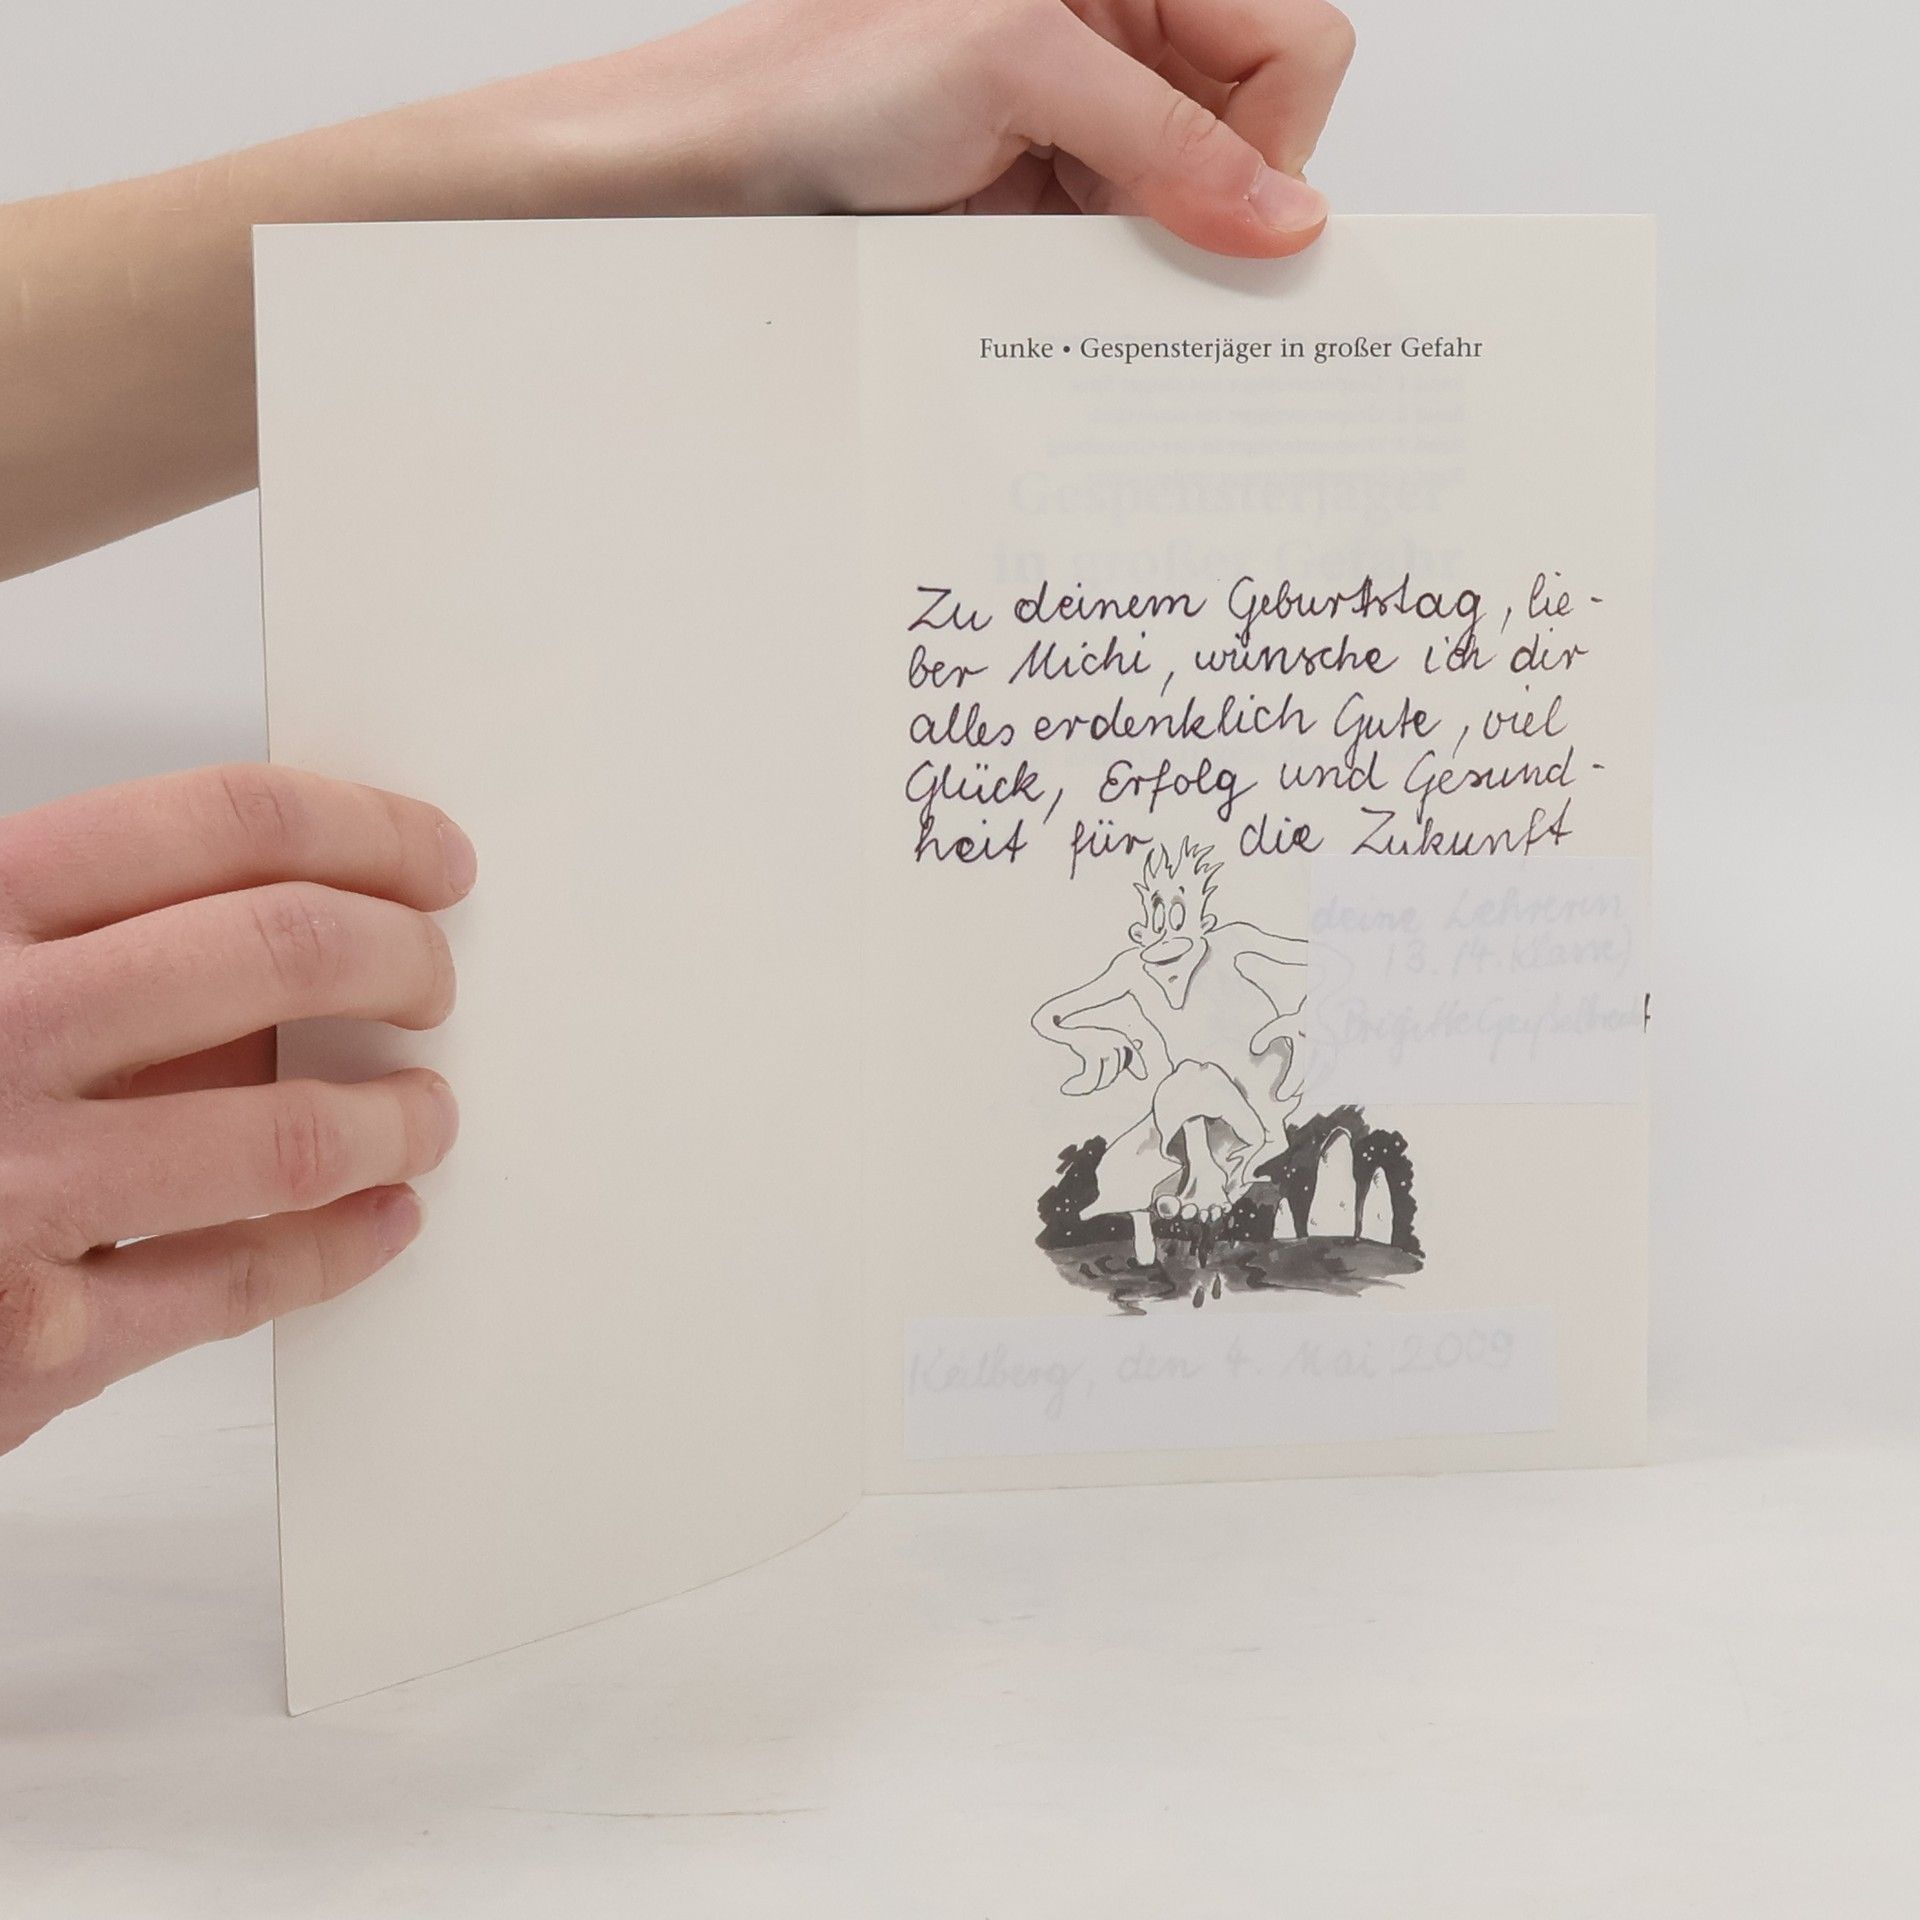 Funke • Gespensterjäger in großer Gefahr
Gespensterjäger
in großer Gefahr
Zu deinem Geburtstag, lie-
ber Michi, wünsche ich dir
alles erdenklich Gute, viel
Glück, Erfolg und Gesund-
heit für die Zukunft
deine Lehrerin
(3./4. Klasse)
Brigitte
den 4. Mai 2009